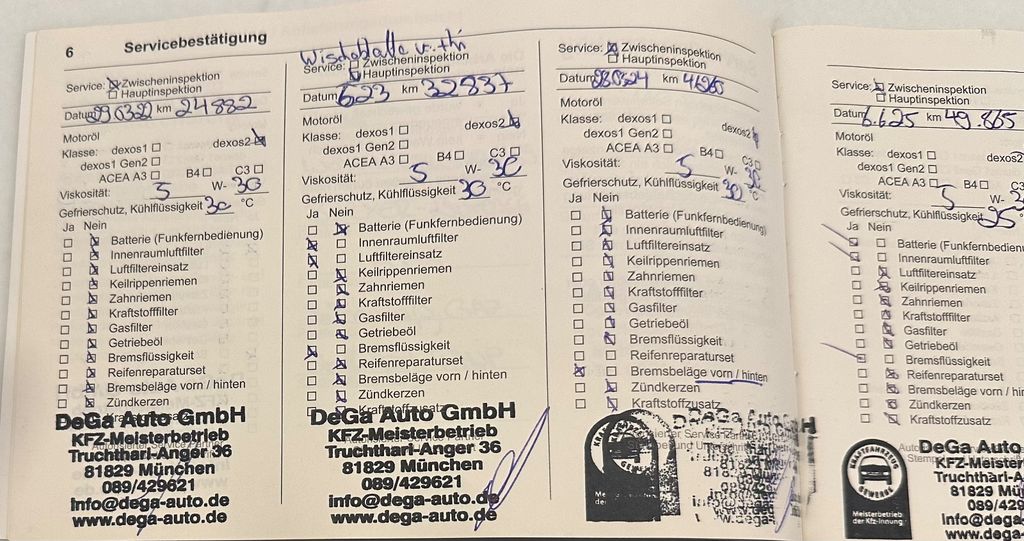 6 Servicebestätigung
Service: Zwischeninspektion
Hauptinspektion
Datum km 24882
Motoröl
Klasse: dexos1 dexos2
dexos1 Gen2
ACEA A3 B4 C3
Viskosität: 5 W- 30
Gefrierschutz, Kühlflüssigkeit 30 °C
Ja Nein
Batterie (Funkfernbedienung)
Innenraumluftfilter
Luftfiltereinsatz
Keilrippenriemen
Zahnriemen
Kraftstofffilter
Gasfilter
Getriebeöl
Bremsflüssigkeit
Reifenreparaturset
Bremsbeläge vorn / hinten
Zündkerzen
Kraftstoffzusatz
DeGa Auto GmbH
KFZ-Meisterbetrieb
Truchthari-Anger 36
81829 München
089/429621
info@dega-auto.de
www.dega-auto.de
Service: Zwischeninspektion
Hauptinspektion
Datum 623 km 32837
Motoröl
Klasse: dexos1 dexos2
dexos1 Gen2
ACEA A3 B4 C3
Viskosität: 5 W- 30
Gefrierschutz, Kühlflüssigkeit 30 °C
Ja Nein
Batterie (Funkfernbedienung)
Innenraumluftfilter
Luftfiltereinsatz
Keilrippenriemen
Zahnriemen
Kraftstofffilter
Gasfilter
Getriebeöl
Bremsflüssigkeit
Reifenreparaturset
Bremsbeläge vorn / hinten
Zündkerzen
Kraftstoffzusatz
DeGa Auto GmbH
KFZ-Meisterbetrieb
Truchthari-Anger 36
81829 München
089/429621
info@dega-auto.de
www.dega-auto.de
Service: Zwischeninspektion
Hauptinspektion
Datum km
Motoröl
Klasse: dexos1 dexos2
dexos1 Gen2
ACEA A3 B4 C3
Viskosität: 5 W- 30
Gefrierschutz, Kühlflüssigkeit 30 °C
Ja Nein
Batterie (Funkfernbedienung)
Innenraumluftfilter
Luftfiltereinsatz
Keilrippenriemen
Zahnriemen
Kraftstofffilter
Gasfilter
Getriebeöl
Bremsflüssigkeit
Reifenreparaturset
Bremsbeläge vorn / hinten
Zündkerzen
Kraftstoffzusatz
DeGa Auto
Service: Zwischeninspektion
Hauptinspektion
Datum 6.6.25 km 49.865
Motoröl
Klasse: dexos1 dexos2
dexos1 Gen2
ACEA A3 B4 C
Viskosität: 5 W-
Gefrierschutz, Kühlflüssigkeit 25 °
Ja Nein
Batterie (Funkfernbedienun
Innenraumluftfilter
Luftfiltereinsatz
Keilrippenriemen
Zahnriemen
Kraftstofffilter
Gasfilter
Getriebeöl
Bremsflüssigkeit
Reifenreparaturset
Bremsbeläge vorn / hin
Zündkerzen
Kraftstoffzusatz
KRAFTFAHRZEUG
GEWERBE
Meisterbetrieb
der Kfz-Innung
DeGa Auto
KFZ-Meister
Truchthari-A
81829 Mü
089/429
info@dega-
www.dega-